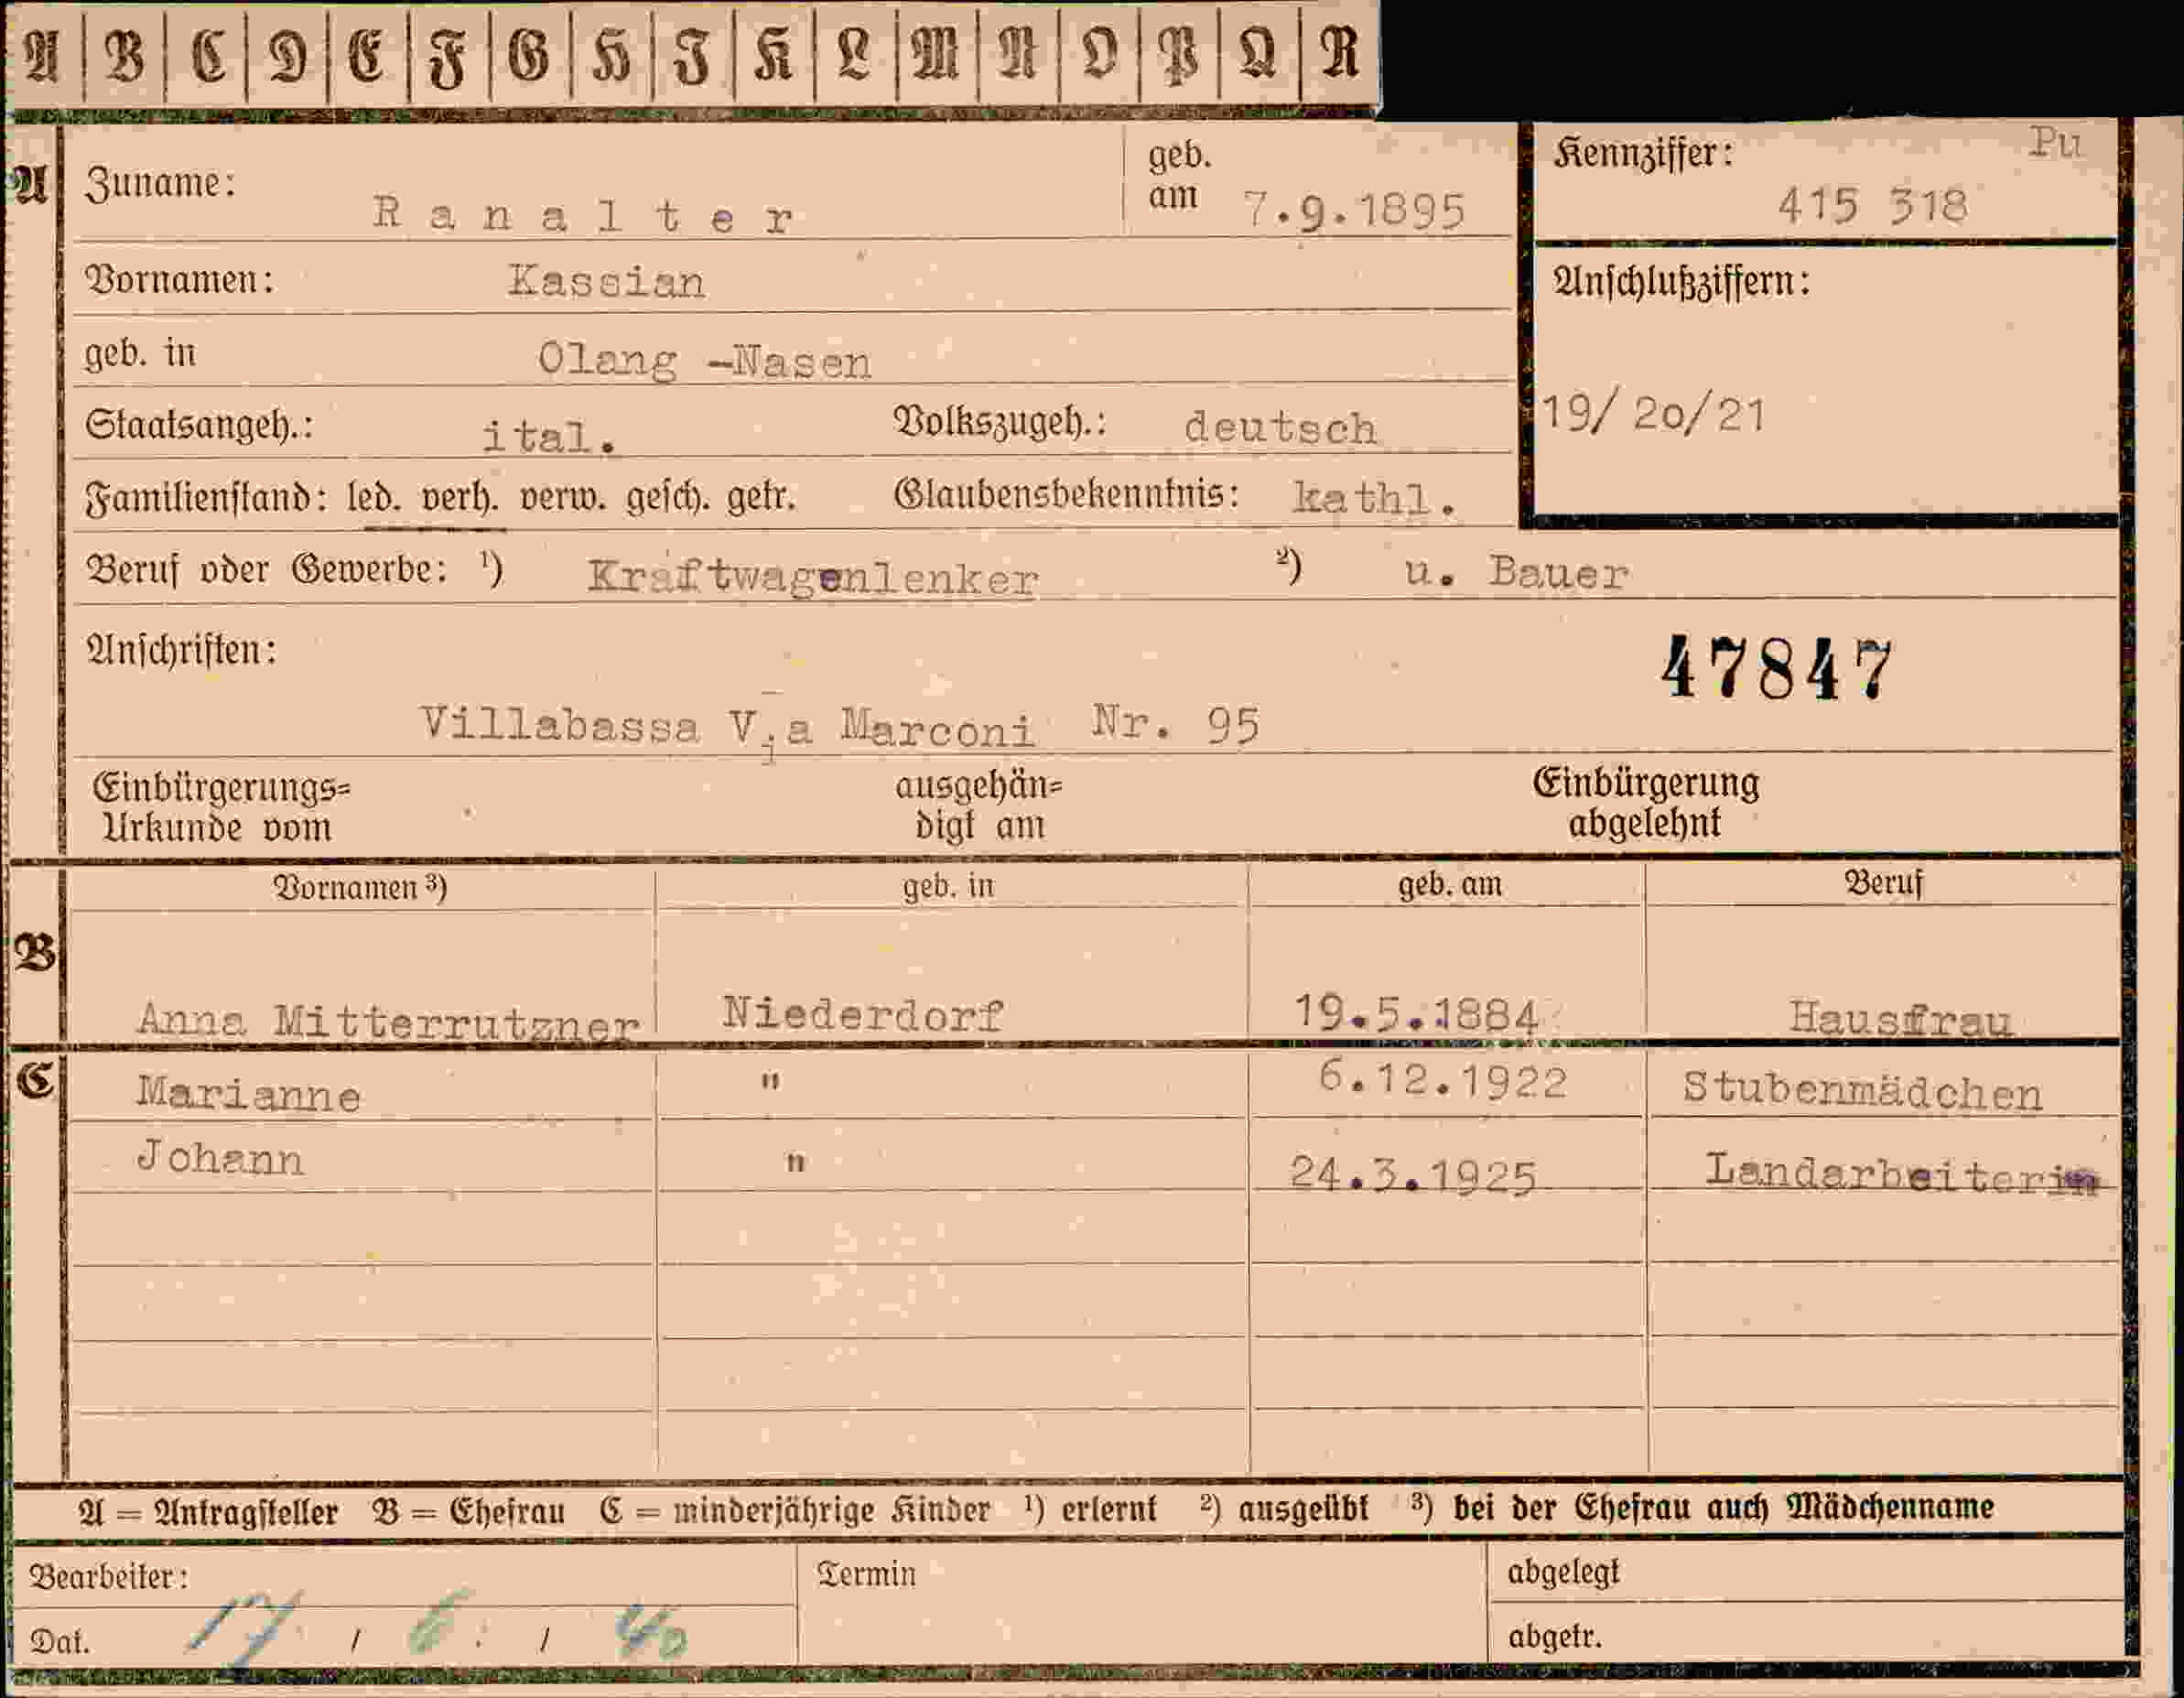 A B C D E F G H I K L M N O P Q R
A Zuname: Ranalter geb. am 7.9.1895
Kennziffer: Pu
415 318
Vornamen: Kassian
Anschlußziffern:
geb. in Olang -Nasen
Staatsangeh.: ital. Volkszugeh.: deutsch
19/ 20/21
Familienstand: led. verh. verw. gesch. getr. Glaubensbekenntnis: kathl.
Beruf oder Gewerbe: ¹) Kraftwagenlenker ²) u. Bauer
Anschriften: 47847
Villabassa Via Marconi Nr. 95
Einbürgerungs= ausgehän= Einbürgerung
Urkunde vom digt am abgelehnt
Vornamen ³) geb. in geb. am Beruf
B
Anna Mitterrutzner Niederdorf 19.5.1884 Hausfrau
C Marianne " 6.12.1922 Stubenmädchen
Johann " 24.3.1925 Landarbeiter
A = Antragsteller B = Ehefrau C = minderjährige Kinder ¹) erlernt ²) ausgeübt ³) bei der Ehefrau auch Mädchenname
Bearbeiter: Termin abgelegt
Dat. 17 / 6. / 40 abgetr.